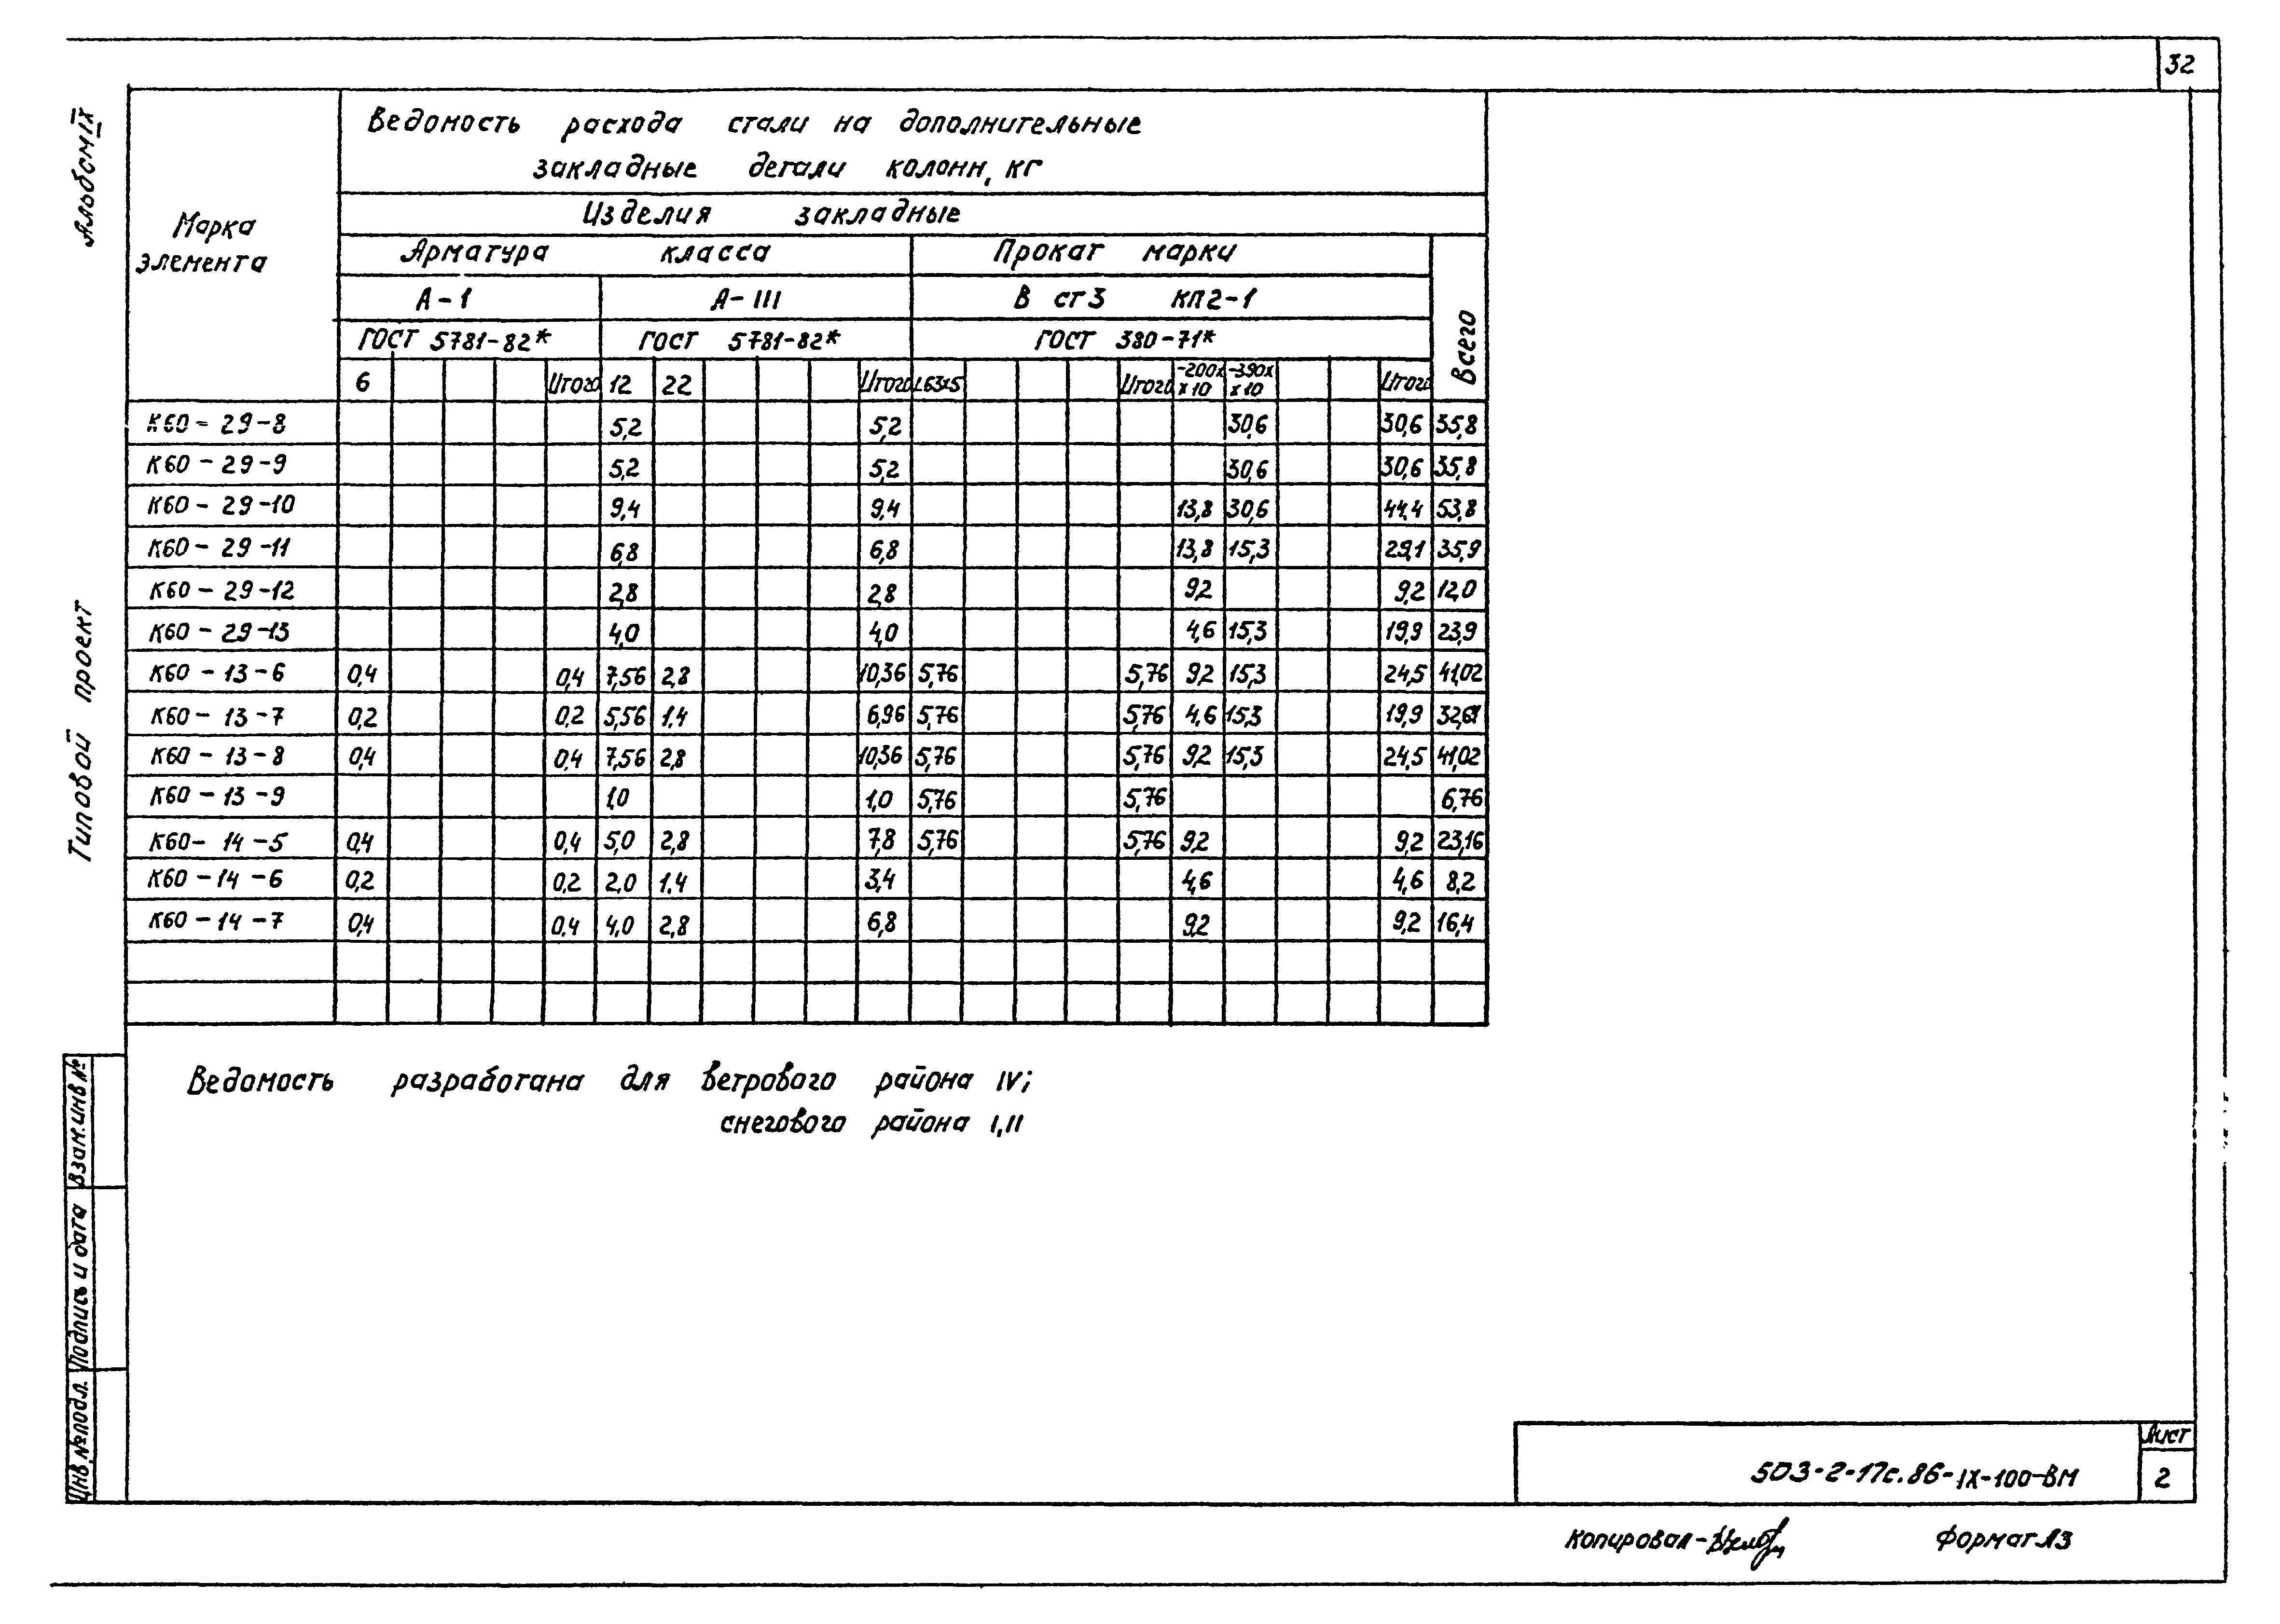 32
Альбом IX
Типовой проект
Марка
элемента
Ведомость расхода стали на дополнительные
закладные детали колонн, кг
Изделия закладные
Арматура класса
Прокат марки
Всего
А-1
А-III
В ст3 кп2-1
ГОСТ 5781-82*
ГОСТ 5781-82*
ГОСТ 380-71*
6 Итого 12 22 Итого L63х5 Итого -200х х10 -390х х10 Итого
К60-29-8 5,2 5,2 30,6 30,6 35,8
К60-29-9 5,2 5,2 30,6 30,6 35,8
К60-29-10 9,4 9,4 13,8 30,6 44,4 53,8
К60-29-11 6,8 6,8 13,8 15,3 29,1 35,9
К60-29-12 2,8 2,8 9,2 9,2 12,0
К60-29-13 4,0 4,0 4,6 15,3 19,9 23,9
К60-13-6 0,4 0,4 7,56 2,8 10,36 5,76 5,76 9,2 15,3 24,5 41,02
К60-13-7 0,2 0,2 5,56 1,4 6,96 5,76 5,76 4,6 15,3 19,9
К60-13-8 0,4 0,4 7,56 2,8 10,36 5,76 5,76 9,2 15,3 24,5 41,02
К60-13-9 1,0 1,0 5,76 5,76 6,76
К60-14-5 0,4 0,4 5,0 2,8 7,8 5,76 5,76 9,2 9,2 23,16
К60-14-6 0,2 0,2 2,0 1,4 3,4 4,6 4,6 8,2
К60-14-7 0,4 0,4 4,0 2,8 6,8 9,2 9,2 16,4
Ведомость разработана для ветрового района IV;
снегового района I,II
Взам.инв №
Подпись и дата
Инв.№подл.
503-2-17с.86-IX-100-ВМ
Лист
2
Копировал-
Формат А3